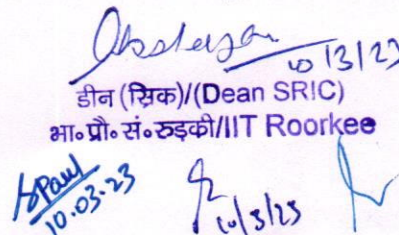 10/3/23
डीन (सिक)/(Dean SRIC)
भा॰ प्रौ॰ सं॰ रुड़की/IIT Roorkee
SPaul
10.03.23
10/3/23